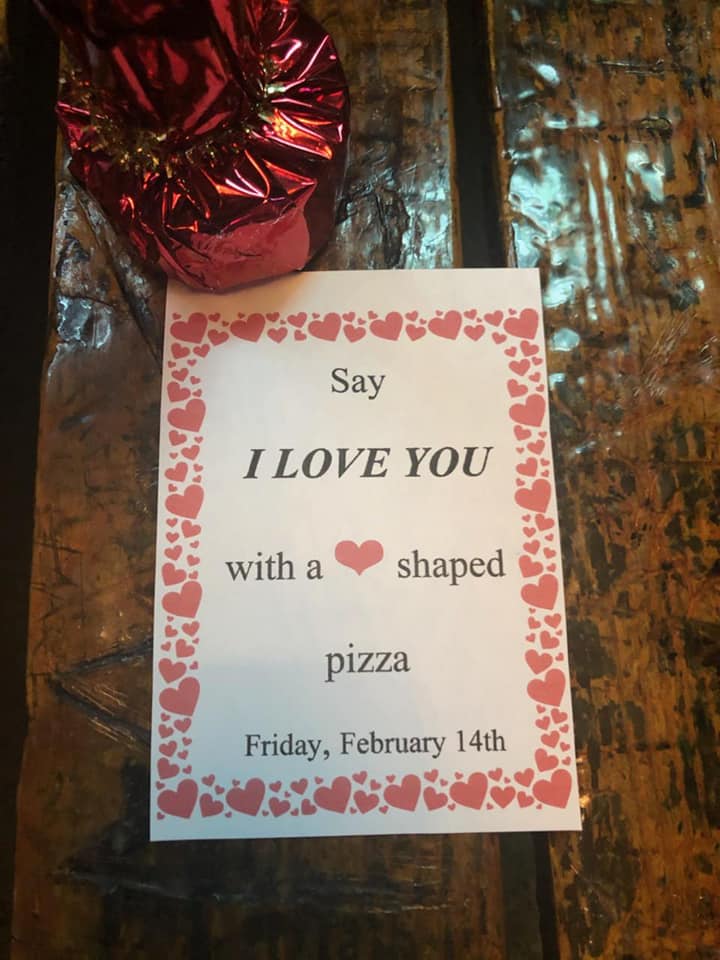 Say
I LOVE YOU
with a shaped
pizza
Friday, February 14th